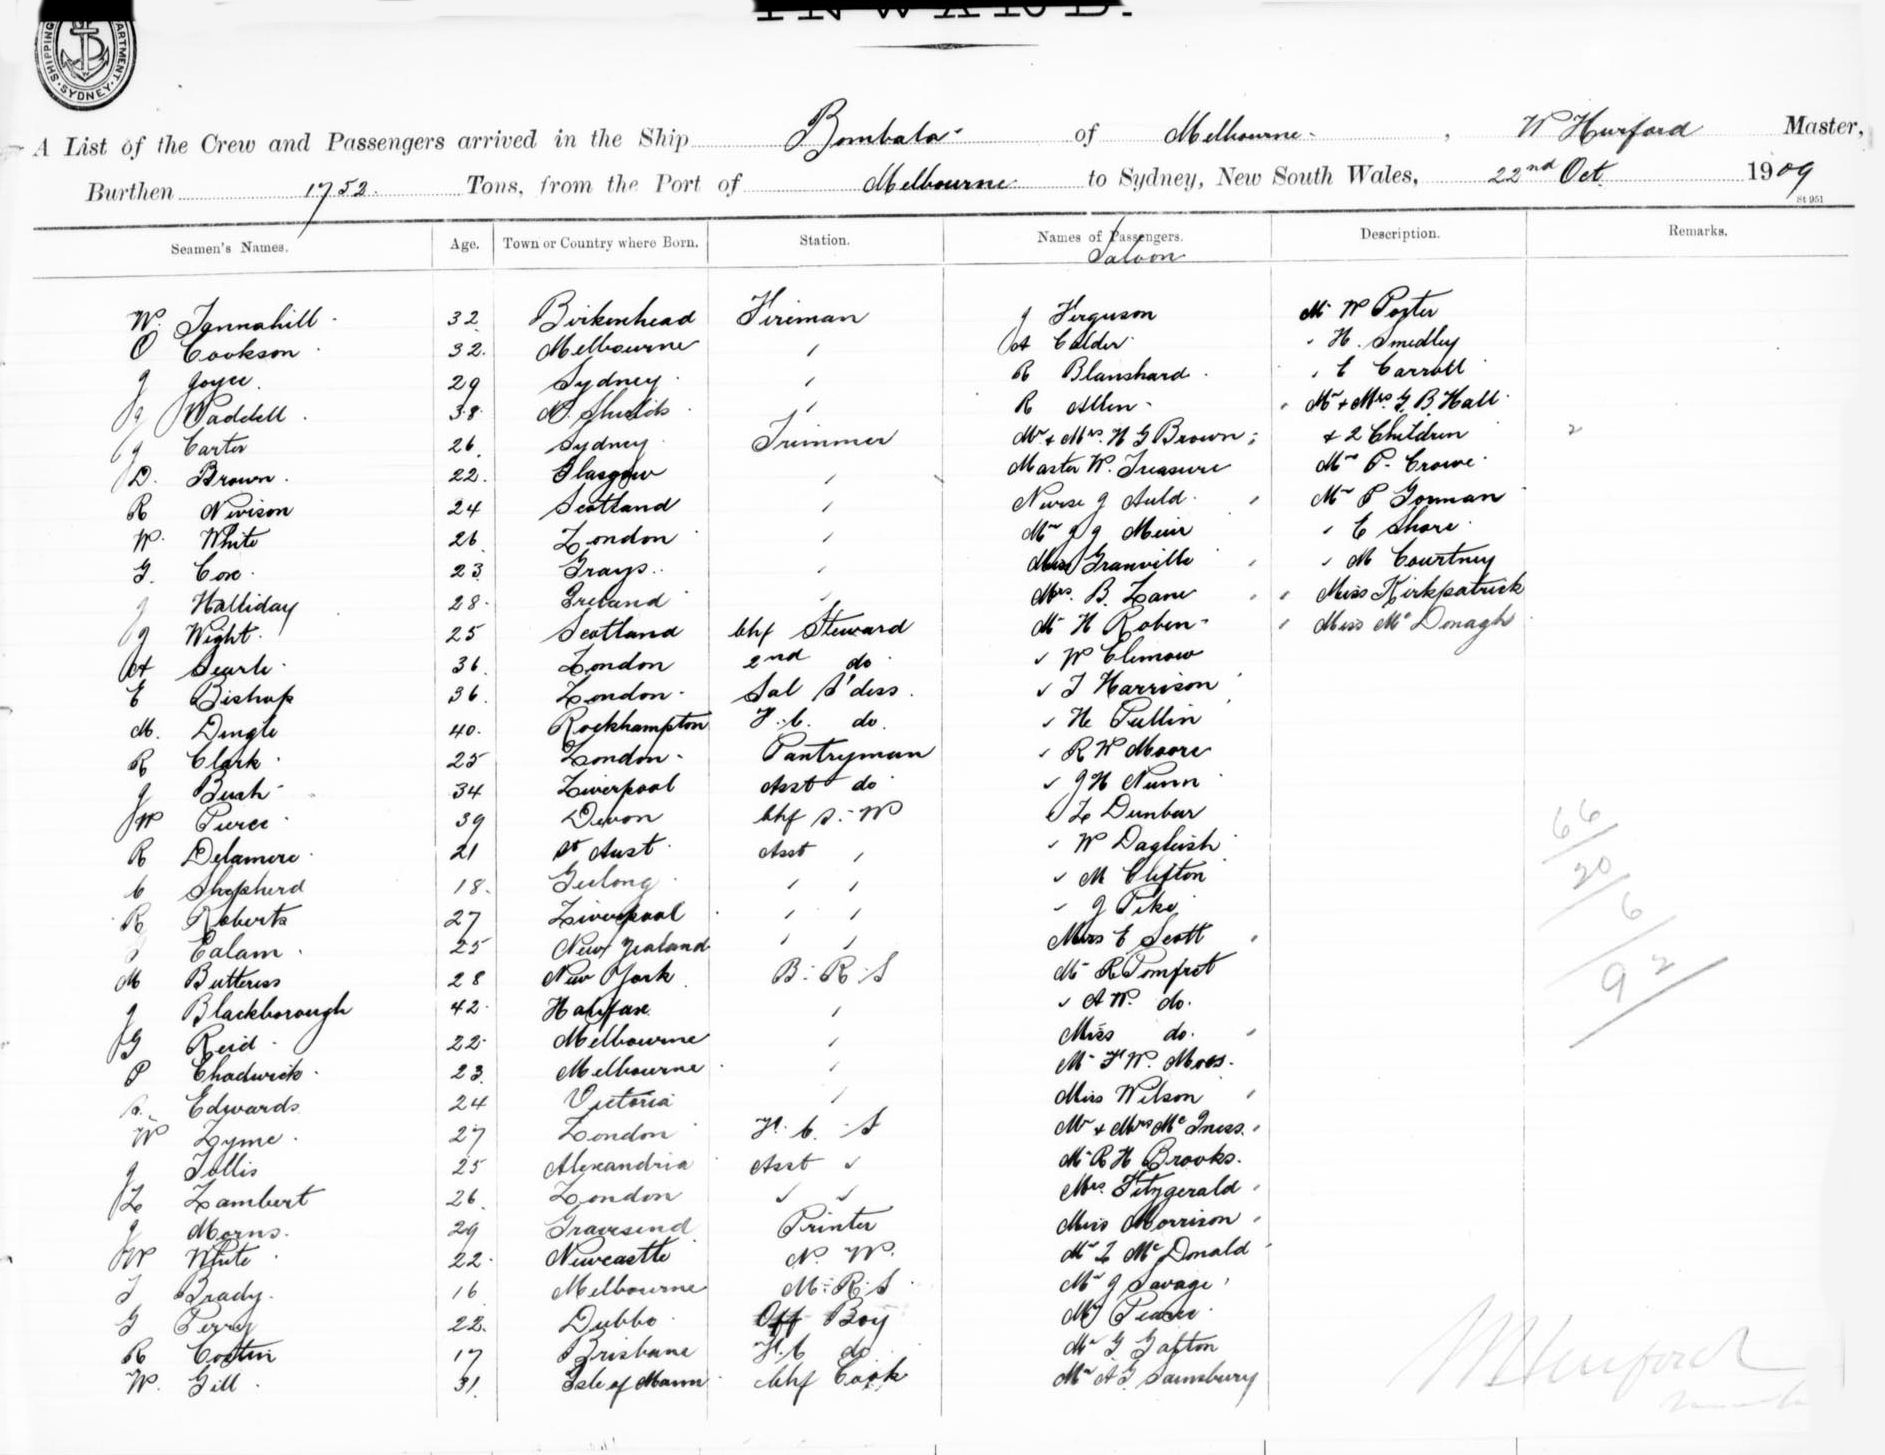 INWARD.
SHIPPING DEPARTMENT SYDNEY
A List of the Crew and Passengers arrived in the Ship Bombala of Melbourne, W Hurford Master,
Burthen 1752 Tons, from the Port of Melbourne to Sydney, New South Wales, 22nd Oct. 1909
St 951
Seamen's Names. Age. Town or Country where Born. Station. Names of Passengers. Description. Remarks.
Saloon
W. Tannahill 32 Birkenhead Fireman J Ferguson Mr W Poster
O Cookson 32 Melbourne " A Calder " H. Smedley
J Joyce 29 Sydney " R Blanshard " E Carroll
J Waddell 38 N. Shields " R Allen Mr + Mrs. G. B Hall
J Carter 26 Sydney Trimmer Mr. + Mrs. H G Brown + 2 Children 2
D. Brown 22 Glasgow " Master W. Treasure Mr P. Crowe
R Nivison 24 Scotland " Nurse J Auld Mr P Gorman
W. White 26 London " Mr J J Muir " E Shore
G. Cox 23 Grays " Miss Granville " M Courtney
J Halliday 28 Ireland " Mrs. B. Lane Miss Kirkpatrick
J Wight 25 Scotland Chf Steward Mr H Robin Miss McDonagh
A Searle 36 London 2nd do " W Clemow
E Bishop 36 London Sal S'dess " T Harrison
M. Dingle 40 Rockhampton F. C. do. " He Pullin
R Clark 25 London Pantryman " R W Moore
J Bush 34 Liverpool Asst do " J H Nunn
W Pierce 39 Devon Chf S. W " L Dunbar
R Delamere 21 St Aust Asst " " W Daglish
C Shepherd 18 Geelong " " " M Clifton 66
R Roberts 27 Liverpool " " " J Pike 20
Ealam 25 New Zealand " " Miss E Scott 6
M Butteriss 28 New York B. R. S Mr R Pomfret 92
J Blackborough 42 Halifax " " A W. do.
G Reid 22 Melbourne " Miss do.
P Chadwick 23 Melbourne " Mr F W. Moss.
S. Edwards 24 Victoria " Miss Wilson
W Lyme 27 London F. C. S Mr + Mrs McIness
J Tollis 25 Alexandria Asst " Mr R H Brooks.
L Lambert 26 London " " Mrs. Fitzgerald
J Morris 29 Gravesend Printer Miss Morrison
W White 22 Newcastle N. W. Mr L McDonald
T Brady 16 Melbourne M. R. S Mr J Savage
G Perry 22 Dubbo Off Boy Mr Pearce
R Costin 17 Brisbane F. C do Mr G Gafton
W. Gill 31 Isle of Mann Chf Cook Mr A G Sainsbury
W Hurford